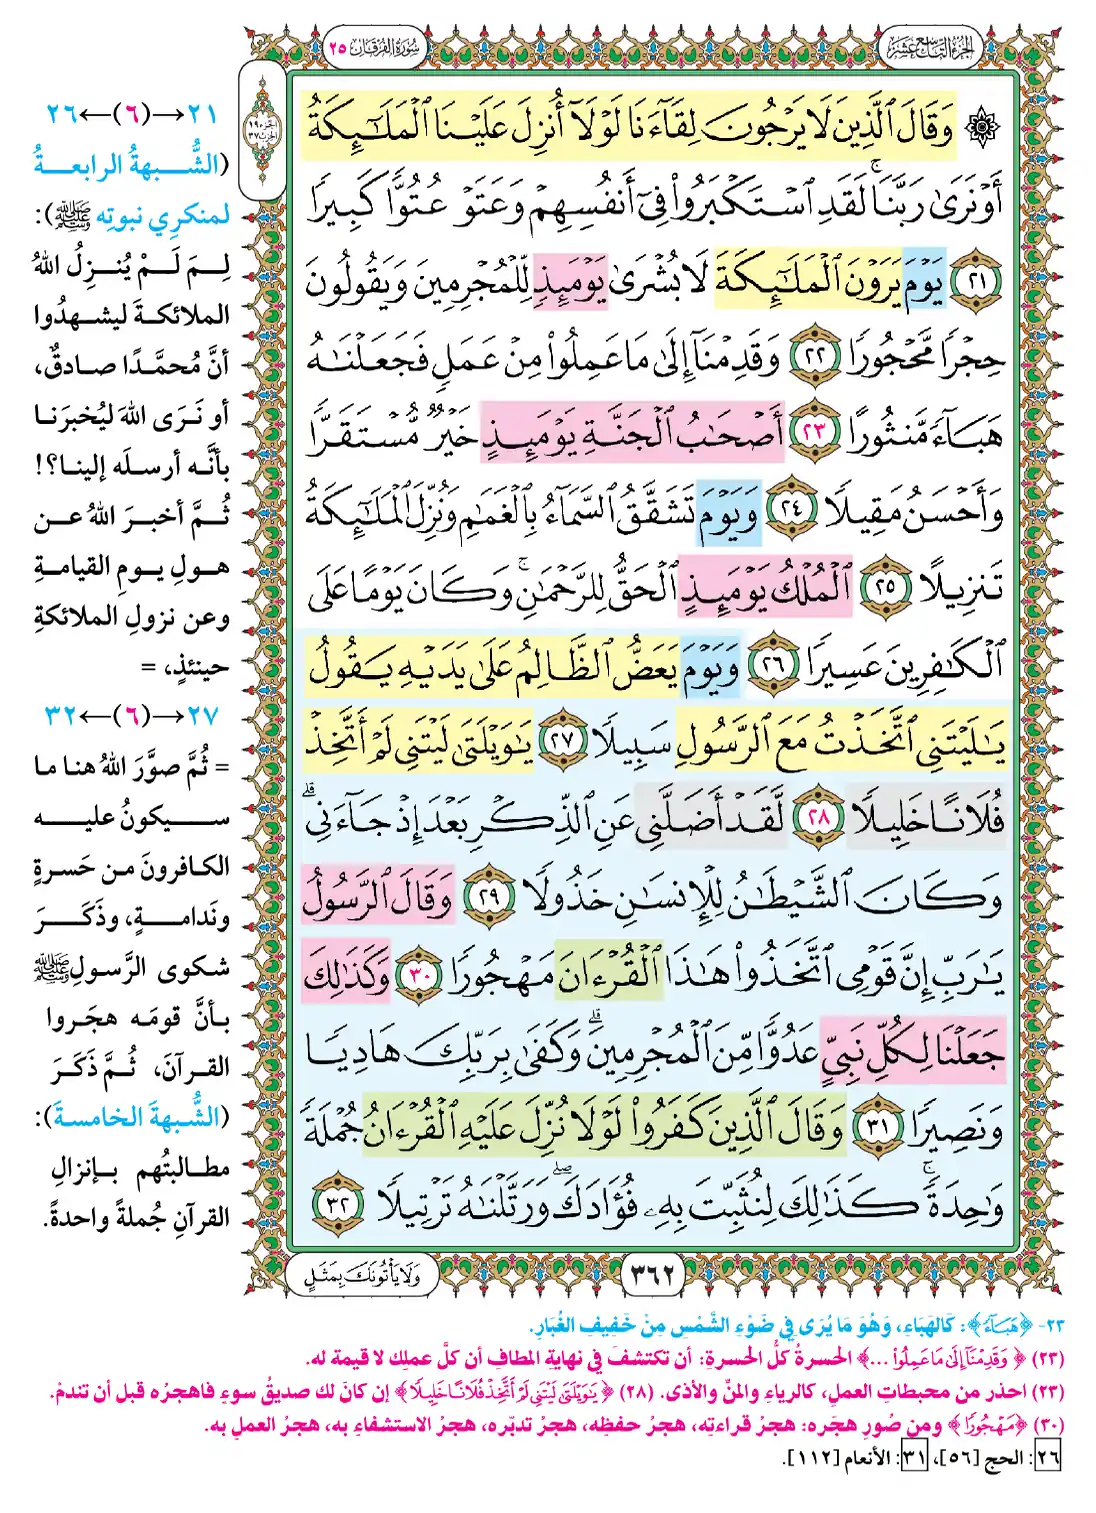 الجزء التاسع عشر
سورة الفرقان ٢٥
الجزء ١٩
الحزب ٣٧
۞ وَقَالَ ٱلَّذِينَ لَا يَرْجُونَ لِقَآءَنَا لَوْلَآ أُنزِلَ عَلَيْنَا ٱلْمَلَـٰٓئِكَةُ
أَوْ نَرَىٰ رَبَّنَا ۗ لَقَدِ ٱسْتَكْبَرُوا۟ فِىٓ أَنفُسِهِمْ وَعَتَوْ عُتُوًّا كَبِيرًا
٢١ يَوْمَ يَرَوْنَ ٱلْمَلَـٰٓئِكَةَ لَا بُشْرَىٰ يَوْمَئِذٍ لِّلْمُجْرِمِينَ وَيَقُولُونَ
حِجْرًا مَّحْجُورًا ٢٢ وَقَدِمْنَآ إِلَىٰ مَا عَمِلُوا۟ مِنْ عَمَلٍ فَجَعَلْنَـٰهُ
هَبَآءً مَّنثُورًا ٢٣ أَصْحَـٰبُ ٱلْجَنَّةِ يَوْمَئِذٍ خَيْرٌ مُّسْتَقَرًّا
وَأَحْسَنُ مَقِيلًا ٢٤ وَيَوْمَ تَشَقَّقُ ٱلسَّمَآءُ بِٱلْغَمَـٰمِ وَنُزِّلَ ٱلْمَلَـٰٓئِكَةُ
تَنزِيلًا ٢٥ ٱلْمُلْكُ يَوْمَئِذٍ ٱلْحَقُّ لِلرَّحْمَـٰنِ ۚ وَكَانَ يَوْمًا عَلَى
ٱلْكَـٰفِرِينَ عَسِيرًا ٢٦ وَيَوْمَ يَعَضُّ ٱلظَّالِمُ عَلَىٰ يَدَيْهِ يَقُولُ
يَـٰلَيْتَنِى ٱتَّخَذْتُ مَعَ ٱلرَّسُولِ سَبِيلًا ٢٧ يَـٰوَيْلَتَىٰ لَيْتَنِى لَمْ أَتَّخِذْ
فُلَانًا خَلِيلًا ٢٨ لَّقَدْ أَضَلَّنِى عَنِ ٱلذِّكْرِ بَعْدَ إِذْ جَآءَنِى ۗ
وَكَانَ ٱلشَّيْطَـٰنُ لِلْإِنسَـٰنِ خَذُولًا ٢٩ وَقَالَ ٱلرَّسُولُ
يَـٰرَبِّ إِنَّ قَوْمِى ٱتَّخَذُوا۟ هَـٰذَا ٱلْقُرْءَانَ مَهْجُورًا ٣٠ وَكَذَٰلِكَ
جَعَلْنَا لِكُلِّ نَبِىٍّ عَدُوًّا مِّنَ ٱلْمُجْرِمِينَ ۗ وَكَفَىٰ بِرَبِّكَ هَادِيًا
وَنَصِيرًا ٣١ وَقَالَ ٱلَّذِينَ كَفَرُوا۟ لَوْلَا نُزِّلَ عَلَيْهِ ٱلْقُرْءَانُ جُمْلَةً
وَٰحِدَةً ۚ كَذَٰلِكَ لِنُثَبِّتَ بِهِۦ فُؤَادَكَ ۖ وَرَتَّلْنَـٰهُ تَرْتِيلًا ٣٢
٣٦٢
وَلَا يَأْتُونَكَ بِمَثَلٍ
٢١→(٦)←٢٦
(الشُّبهةُ الرابعةُ
لمنكرِي نبوتِه ﷺ):
لِمَ لَمْ يُنزِلُ اللهُ
الملائكةَ ليشهدُوا
أنَّ مُحمَّدًا صادقٌ،
أو نَرَى اللهَ ليُخبرَنا
بأنَّه أرسلَه إلينا؟!
ثُمَّ أخبرَ اللهُ عن
هولِ يومِ القيامةِ
وعن نزولِ الملائكةِ
حينئذٍ، =
٢٧→(٦)←٣٢
= ثُمَّ صوَّرَ اللهُ هنا ما
سيكونُ عليه
الكافرونَ من حَسرةٍ
ونَدامةٍ، وذَكَرَ
شكوى الرَّسولِ ﷺ
بأنَّ قومَه هجَروا
القرآنَ، ثُمَّ ذَكَرَ
(الشُّبهةَ الخامسةَ):
مطالبتُهم بإنزالِ
القرآنِ جُملةً واحدةً.
٢٣- ﴿هَبَآءً﴾: كَالهَبَاءِ، وَهُوَ مَا يُرَى فِي ضَوْءِ الشَّمْسِ مِنْ خَفِيفِ الغُبَارِ.
(٢٣) ﴿وَقَدِمْنَآ إِلَىٰ مَا عَمِلُوا۟ ...﴾ الحسرةُ كلُّ الحسرةِ: أن تكتشفَ في نهايةِ المطافِ أن كلَّ عملِك لا قيمة له.
(٢٣) احذر من محبطاتِ العملِ، كالرياءِ والمنِّ والأذى. (٢٨) ﴿يَـٰوَيْلَتَىٰ لَيْتَنِى لَمْ أَتَّخِذْ فُلَانًا خَلِيلًا﴾ إن كانَ لك صديقُ سوءٍ فاهجرْه قبل أن تندمْ.
(٣٠) ﴿مَهْجُورًا﴾ ومن صُورِ هجَره: هجرُ قراءتِه، هجرُ حفظِه، هجرُ تدبّره، هجرُ الاستشفاءِ به، هجرُ العملِ به.
٢٦: الحج [٥٦]، ٣١: الأنعام [١١٢].